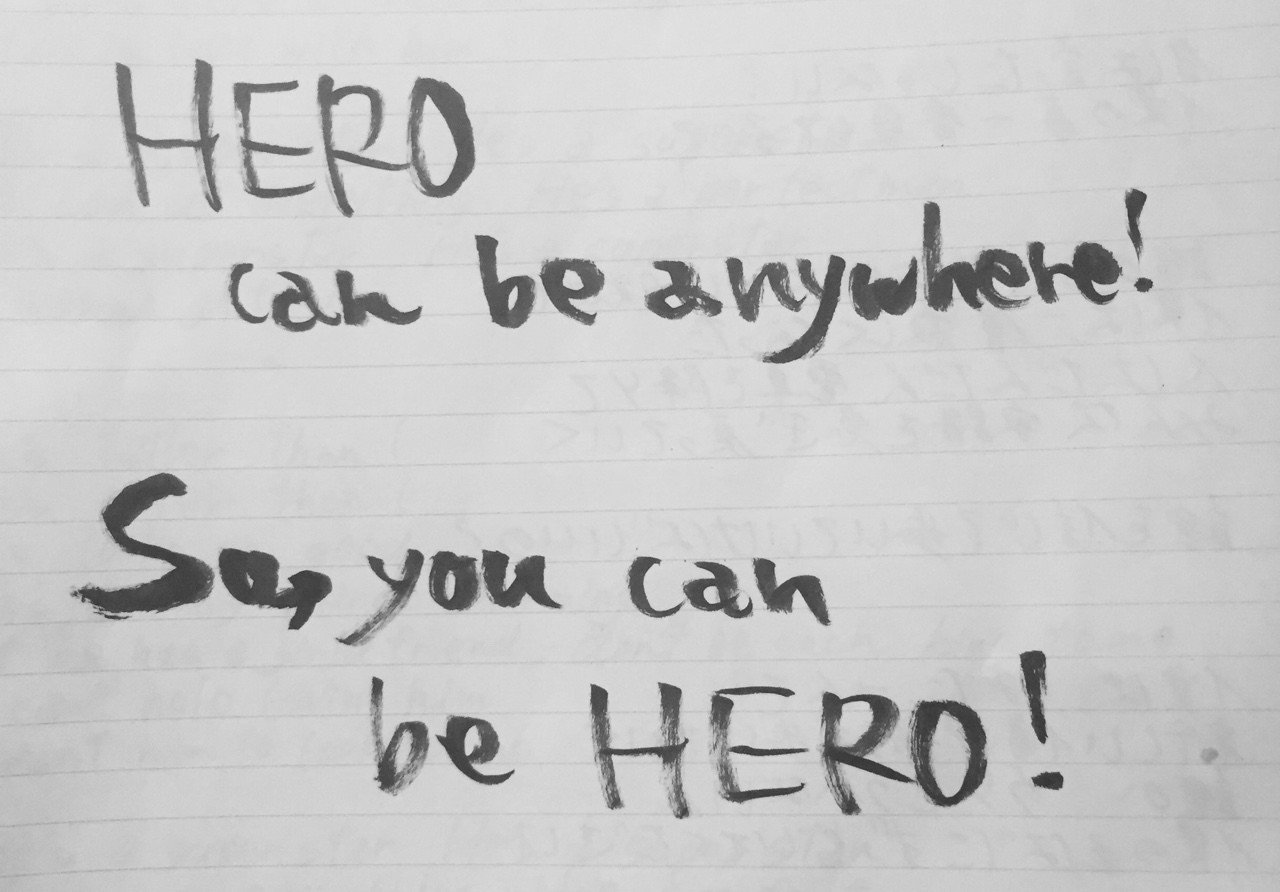 HERO
can be anywhere!
So, you can
be HERO!